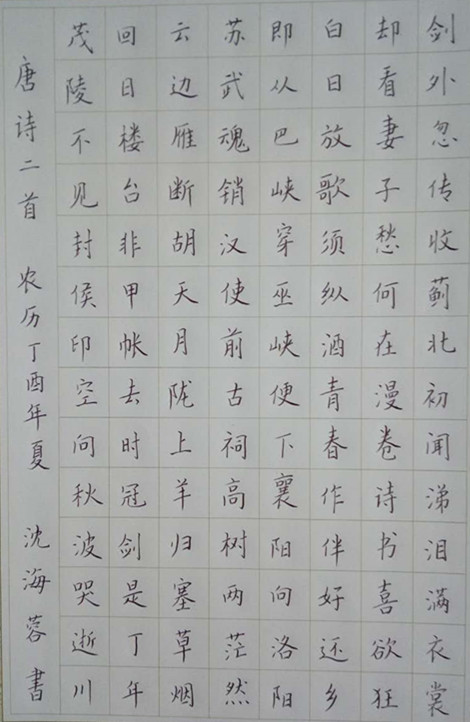 剑外忽传收蓟北初闻涕泪满衣裳
却看妻子愁何在漫卷诗书喜欲狂
白日放歌须纵酒青春作伴好还乡
即从巴峡穿巫峡便下襄阳向洛阳
苏武魂销汉使前古祠高树两茫然
云边雁断胡天月陇上羊归塞草烟
回日楼台非甲帐去时冠剑是丁年
茂陵不见封侯印空向秋波哭逝川
唐诗二首 农历丁酉年夏 沈海蓉书